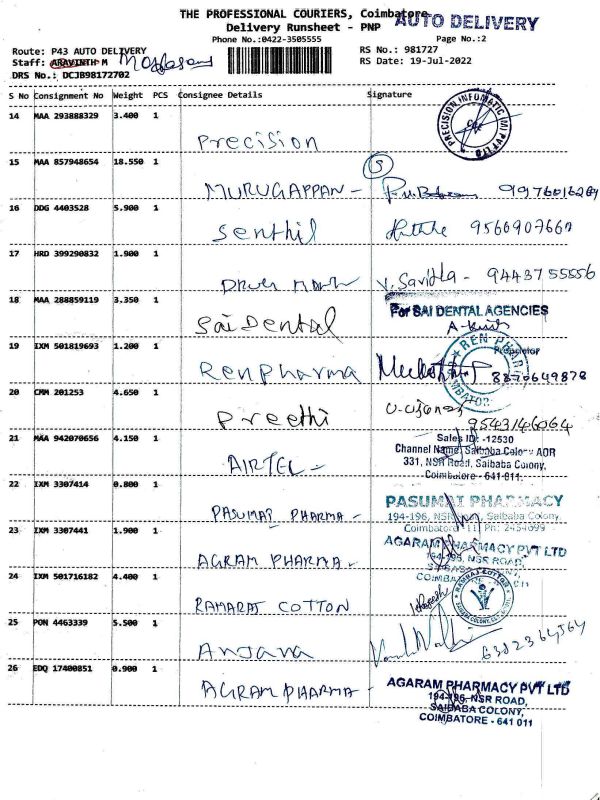 THE PROFESSIONAL COURIERS, Coimbatore
AUTO DELIVERY
Delivery Runsheet - PNP
Phone No.:0422-3505555
Page No.:2
Route: P43 AUTO DELIVERY
RS No.: 981727
Staff: ARAVINTH M
RS Date: 19-Jul-2022
DRS No.: DCJB98172702
S No Consignment No Weight PCS Consignee Details Signature
14 MAA 293888329 3.400 1
Precision
PRECISION INFOMATIC (M) PVT LTD
15 MAA 857948654 18.550 1
MURUGAPPAN -
16 DDG 4403528 5.900 1
Senthil
17 HRD 399290832 1.900 1
V. Savitha - 9443755556
18 MAA 288859119 3.350 1
For SAI DENTAL AGENCIES
Sai Dental
19 IXM 501819693 1.200 1
REN PHARMA
Proprietor
Ren Pharma
8870649878
20 CMM 201253 4.650 1
Preethi
9543146064
21 MAA 942070656 4.150 1
Sales ID: -12530
Channel Name: Saibaba Colony AOR
331, NSR Road, Saibaba Colony,
Coimbatore - 641 011.
AIRTEL -
22 IXM 3307414 0.800 1
PASUMAI PHARMACY
194-196, NSR Road, Saibaba Colony,
Coimbatore - 11 Ph: 2454699
PASUMAI PHARMA -
23 IXM 3307441 1.900 1
AGARAM PHARMACY PVT LTD
194-196, NSR ROAD,
SAIBABA COLONY,
AGRAM PHARMA -
24 IXM 501716182 4.400 1
RAMRAJ COTTON
SAIBABA COLONY
RAMARAJ COTTON
25 PON 4463339 5.500 1
Anjana
6382364564
26 EDQ 17400851 0.900 1
AGRAM PHARMA -
AGARAM PHARMACY PVT LTD
194-196, NSR ROAD,
SAIBABA COLONY,
COIMBATORE - 641 011